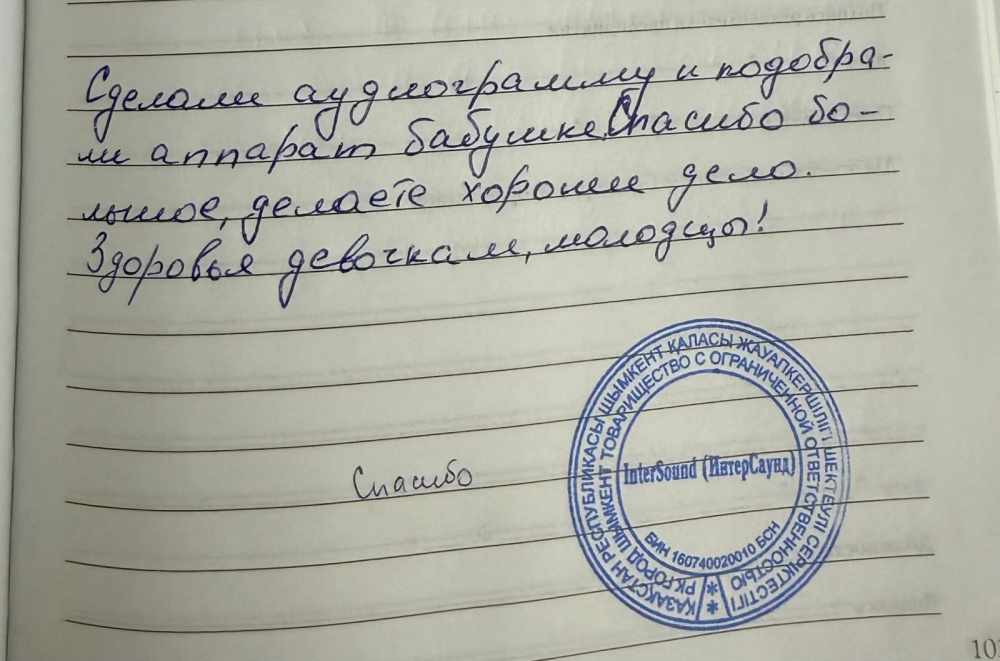 Сделали аудиограмму и подобра-
ли аппарат бабушке. Спасибо бо-
льшое, делаете хорошее дело.
Здоровья девочкам, молодцы!
Спасибо
ҚАЗАҚСТАН РЕСПУБЛИКАСЫ ШЫМКЕНТ ҚАЛАСЫ ЖАУАПКЕРШІЛІГІ ШЕКТЕУЛІ СЕРІКТЕСТІГІ
РК ГОРОД ШЫМКЕНТ ТОВАРИЩЕСТВО С ОГРАНИЧЕННОЙ ОТВЕТСТВЕННОСТЬЮ
InterSound (ИнтерСаунд)
БИН 160740020010 БСН